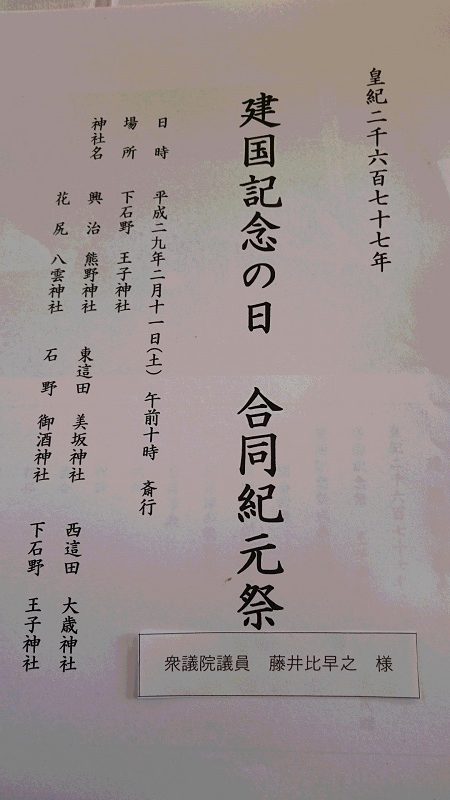 皇紀二千六百七十七年
建国記念の日　合同紀元祭
日時　平成二九年二月十一日(土)　午前十時　斎行
場所　下石野　王子神社
神社名　興治　熊野神社　東這田　美坂神社　西這田　大歳神社
花尻　八雲神社　石野　御酒神社　下石野　王子神社
衆議院議員　藤井比早之　様